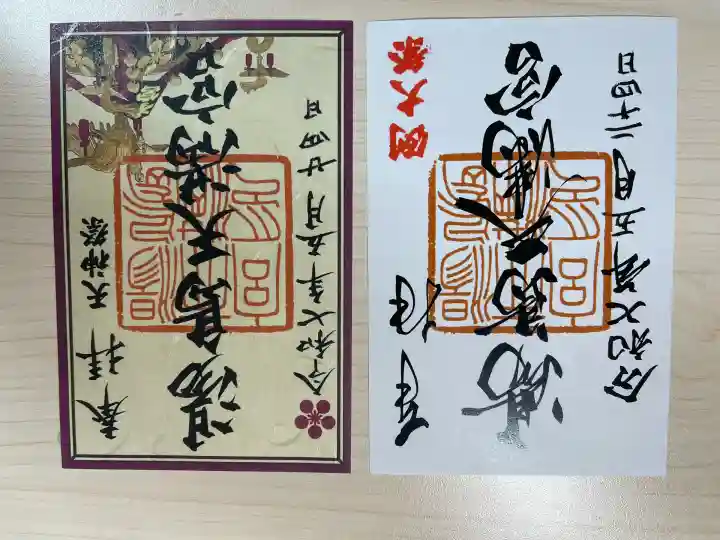 奉拝
天神祭
湯島天満宮
令和七年五月廿四日
奉拝
例大祭
湯島天満宮
令和七年五月二十四日